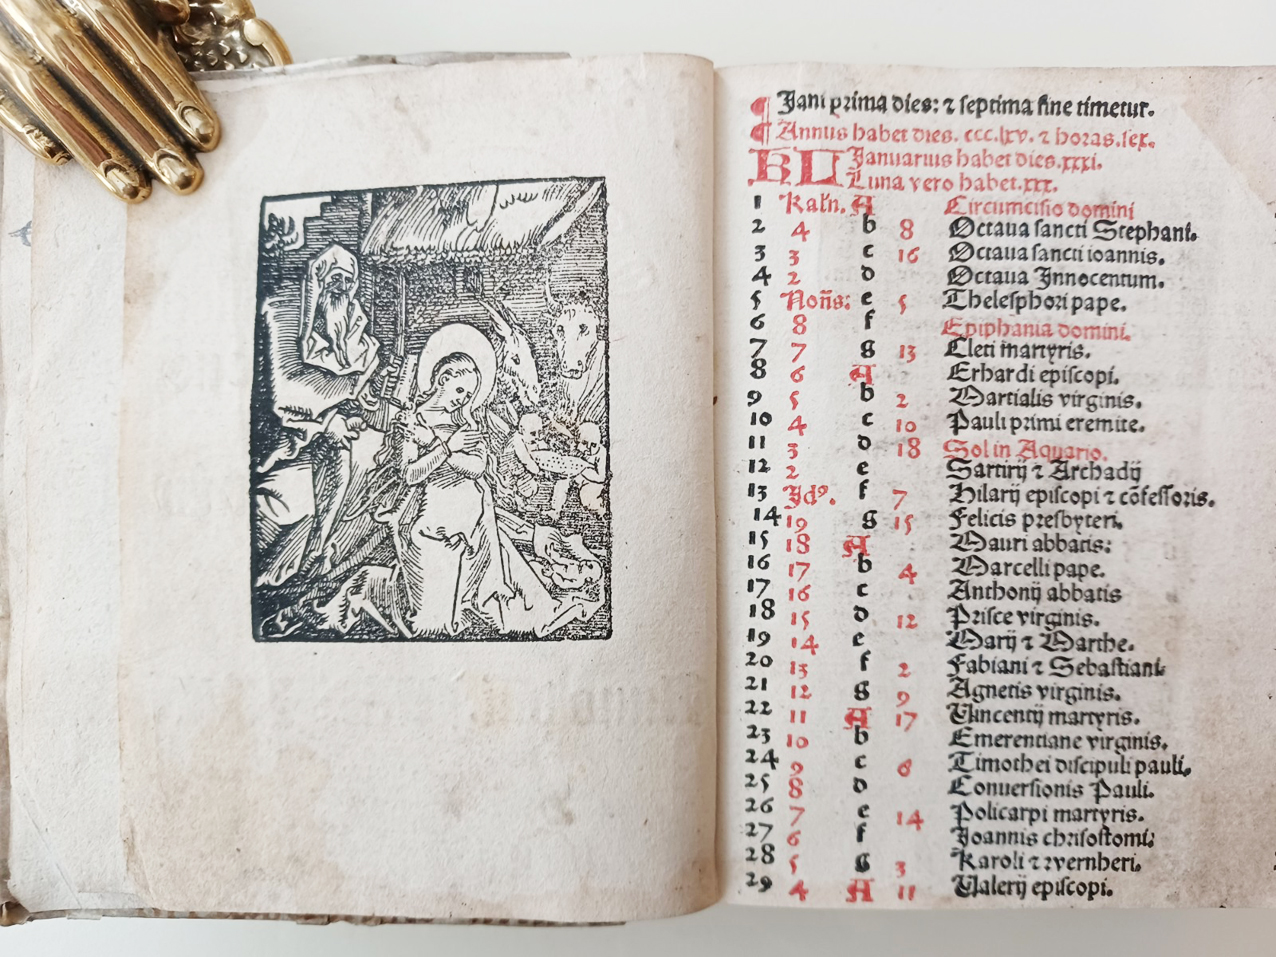 ¶ Jani prima dies: ⁊ septima fine timetur.
¶ Annus habet dies. ccc.lxv. ⁊ horas.sex.
KL Januarius habet dies.xxxi.
Luna vero habet.xxx.
1 Kaln. A Circumcisio domini
2 4 b 8 Octaua sancti Stephani.
3 3 c 16 Octaua sancti ioannis.
4 2 d Octaua Innocentum.
5 Noñs: e 5 Thelesphori pape.
6 8 f Epiphania domini.
7 7 g 13 Cleti martyris.
8 6 A Erhardi episcopi.
9 5 b 2 Martialis virginis.
10 4 c 10 Pauli primi eremite.
11 3 d 18 Sol in Aquario.
12 2 e Sartirij ⁊ Archadij
13 Jdꝰ. f 7 Hilarij episcopi ⁊ cōfessoris.
14 19 g 15 Felicis presbyteri.
15 18 A Mauri abbatis:
16 17 b 4 Marcelli pape.
17 16 c Anthonij abbatis
18 15 d 12 Prisce virginis.
19 14 e Marij ⁊ Marthe.
20 13 f 2 Fabiani ⁊ Sebastiani.
21 12 g 9 Agnetis virginis.
22 11 A 17 Vincentij martyris.
23 10 b Emerentiane virginis.
24 9 c 6 Timothei discipuli pauli.
25 8 d Conuersionis Pauli.
26 7 e 14 Policarpi martyris.
27 6 f Joannis chrisostomi:
28 5 g 3 Karoli ⁊ wernheri.
29 4 A 11 Valerij episcopi.